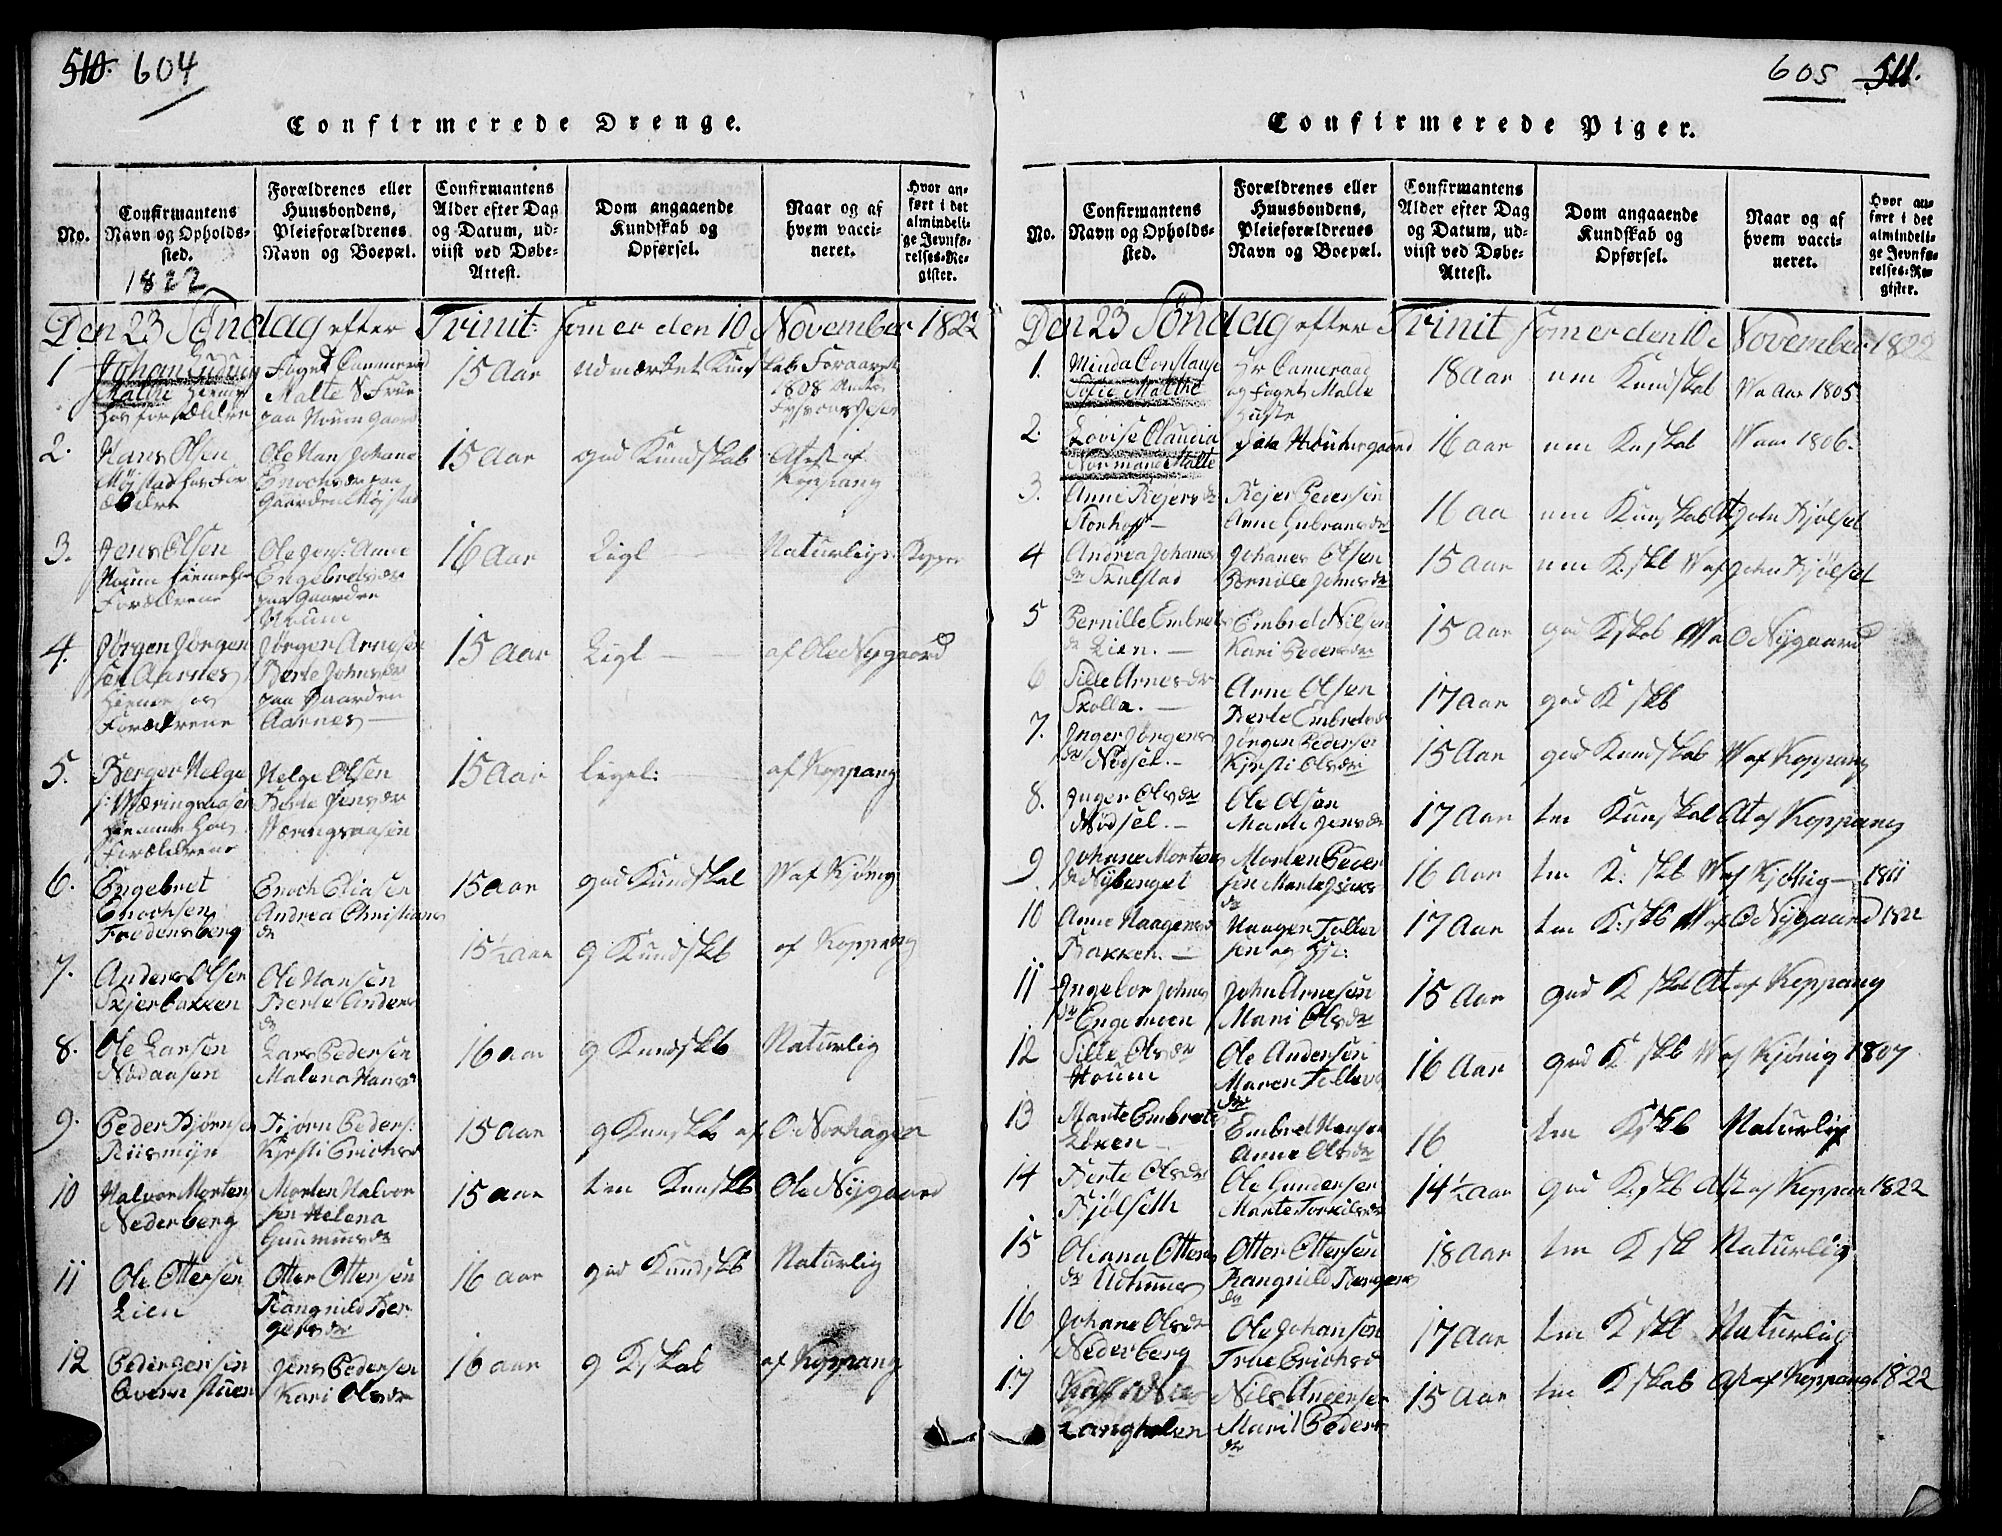 510. 604
Confirmerede Drenge.
No.
Confirmantens Navn og Opholds-sted.
1822
Forældrenes eller Huusbondens, Pleieforældrenes Navn og Boepæl.
Confirmantens Alder efter Dag og Datum, ud-viist ved Døbe-Attest.
Dom angaaende Kundskab og Opførsel.
Naar og af hvem vacci-neret.
Hvor an-ført i det almindeli-ge Jevnfø-relses-Re-gister.
Den 23 Søndag efter Trinit: som er den 10 November 1822
1 Johan Malte hos forældre
Foget Malte & Frue paa Gaard
15 Aar
udmærket Kundskab
Foraaret 1808
2. Hans Olsen hos For ældre
Ole Han Johane Enochsdr paa Gaarden
15 Aar
god Kundskab
Atest af Koppang
3. Jens Olsen Forældrene
Ole Jens: Anne Engebretsdr paa Gaarden
16 Aar
Ligl
Naturlige Kopper
4. Jørgen Jørgen sen Aarnes hieme Forældrene
Jørgen Arnesen Berte Johnsdr paa Gaarden Aarnes
15 Aar
Ligl
af Ole Nygaard
5. Berger Helge s: Væringsaasen hiemme hos Forældrene
Helge Olsen Berte Jensdr Væringsaasen
15 Aar
ligel:
af Koppang
6. Engebret Enochsen Fredensberg
Enoch Eliasen Andrea Christians dr
15 aar
god Kundskal
W af Kjønig
7. Anders Olsen Skjerbakken
Ole Hansen Berte Anders dr
15½ Aar
g Kundskb
af Koppang
8. Ole Larsen Nødaasen
Lars Pedersen Malena Hans
16 aar
g Kundskb
Naturlig
9. Peder Bjørnsen
Bjørn Peders: Kjersti Erichsd
15 aar
g Kunskb
af O Norhagen
10 Halvor Mortens Nederberg
Morten Halvor sen Helena
15 aar
tem Kunskb
Ole Nygaard
11 Ole Ottersen Lien
Otter Ottersen Rangnild Ber gersdr
16 aar
god Kundskb
Naturlig
12 Peder Jensen
Jens Pedersen Kari Olsdr
16 aar
g Kskab
af Koppang
605 511.
Confirmerede Piger.
No.
Confirmantens Navn og Opholds-sted.
Forældrenes eller Huusbondens, Pleieforældrenes Navn og Boepæl.
Confirmantens Alder efter Dag og Datum, ud-viist ved Døbe-Attest.
Dom angaaende Kundskab og Opførsel.
Naar og af hvem vacci-neret.
Hvor an-ført i det almindeli-ge Jevnfø-relses-Re-gister.
Den 23 Søndag efter Trinit som er den 10 November 1822
1. Minda Constance Sofie Malthe
Hr Cameraad og Foget Malte
18 aar
um Kundskab
Wa Aar 1805
2. Lovise Claudia Normand Malte
16 aar
um Kskab
W aar 1806.
3. Anne Rejersdr Storhoff
Rejer Pedersen Anne Gubransdr
16 aa
um Kunskab
At John Bjølset
4 Andrea Johanes dr Skulstad
Johanes Olsen Pernille Johnsdr
15 Aar
um K:skb
W af John Bjølset
5 Pernille Embrets dr Lien.
Embret Nilsen Kari Pedersdr
15 Aar
god Kskab
Wa O Nygaard
6 Sille Arnesdr Skolla.
Arne Olsen Berte Embretsdr
17 aar
god K skb
7. Inger Jørgens dr Nødsel.
Jørgen Pedersen Kjersti Olsdr
15 Aar
god Kundskab
W af Koppang
8. Inger Olsdr Nødsel.
Ole Olsen Marte Jensdr
17 Aar
tem Kunskal
At af Koppang
9 Johane Mortens dr Nyberget
Morten Peder sen Marte dr
16 Aar
tem K: skb
W af Kjønig 1811
10 Anne Haagensd Bakken.
Haagen Tolle sen og
17 Aar
tem K:skb
W af O Nygaard 1822
11 Ingebor Johns dr Engemoen
John Arnesen Mari Olsdr
15 Aar
god K skal
At af Koppang
12 Sille Olsdr
Ole Andersen Maren Tollevs dr
16 Aar
god K skb
W af Kjønig 1807
13 Marte Embrets
Embret Hansen Anne Olsdr
16
tem Kskb
Naturlig
14 Berte Olsdr Bjølseth
Ole Gundersen Marte Torkilsdr
14½ Aar
god K:skb
Atst af Koppan 1822
15 Oliana Otters dr
Otter Ottersen Rangnild Bergers dr
18 Aar
tem K sk
Naturlig
16 Johane Olsdr Nederberg
Ole Johansen Erichsd
17 Aar
tem K skl
Naturlig
17 Langholen
Nils Andersen Marit Peders dr
15 Aar
tem Kskab
At af Koppang 1822